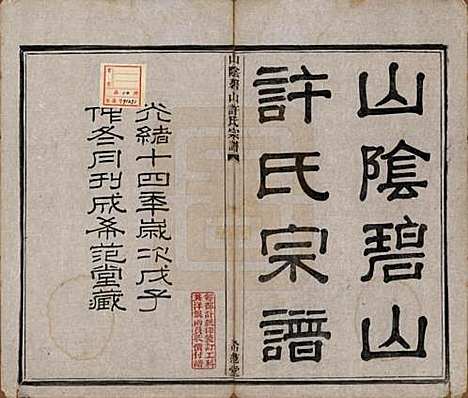 山陰碧山
許氏宗譜
山陰碧山許氏宗譜
希范堂
光緒十四年歲次戊子
仲冬月刊成希范堂藏